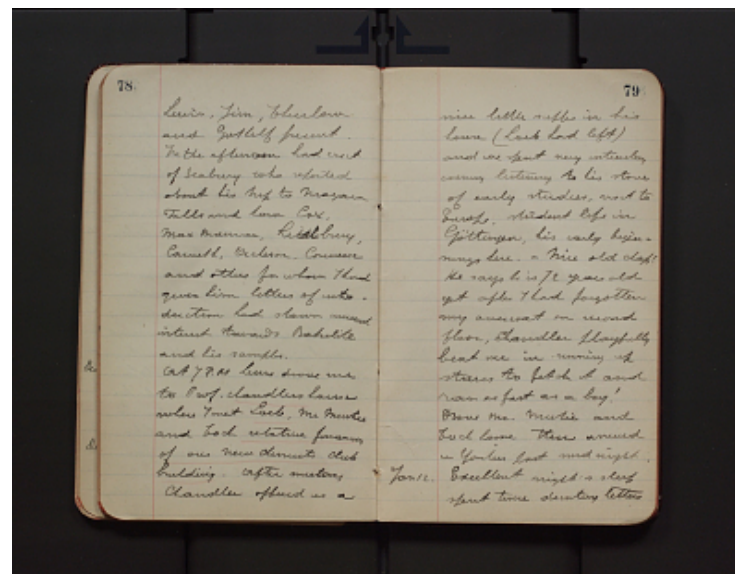 78
Lewis, Jim, Thurlow
and Gotthelf present.
In the afternoon had visit
of Seabury who reported
about his trip to Niagara
Falls and how Cox,
Max Mauran,
and others for whom I had
given him letters of intro-
duction had shown
interest towards Bakelite
and his samples.
At 7 P.M. drove me
to Prof. Chandlers house
where I met Loeb, Mc Murtrie
and Loeb relative
of our new chemists club
building. After meeting
Chandler offered us a
79
nice little supper in his
home (Loeb had left)
and we spent very interesting
evening listening to his stories
of early studies, visit to
Europe, student life in
Göttingen, his early begin-
nings here. a nice old chap!
He says he is 72 years old
yet after I had forgotten
my overcoat on second
floor, Chandler playfully
beat me in running up
stairs to fetch it and
ran as fast as a boy!
Drove Mc. Murtrie and
home then arrived
in Yonkers past midnight.
Jan 12. Excellent night's sleep
spent time dictating letters